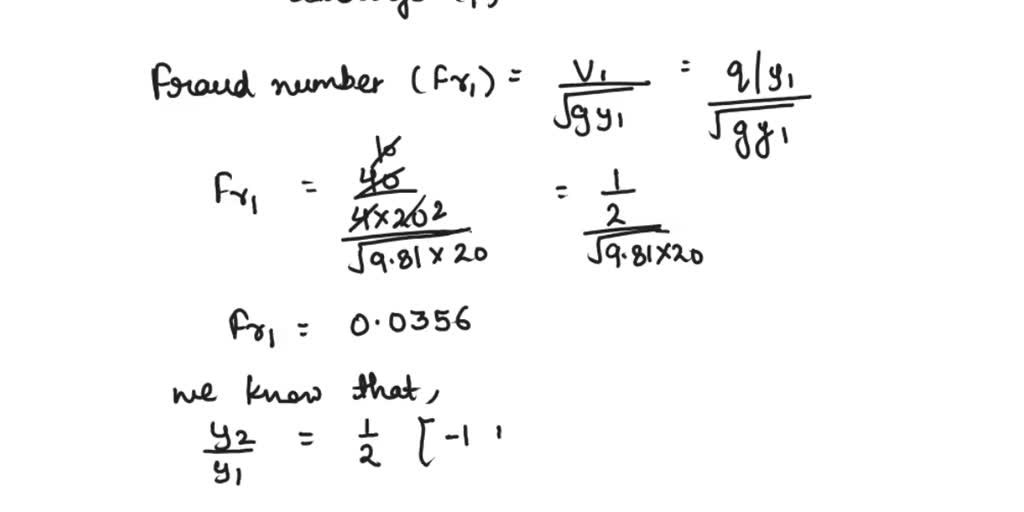 Fraud number (Fr₁) = V₁ / √gy₁ = q/y₁ / √gy₁
Fr₁ = 40 10 / 4×20 2 / √9.81 × 20 = 1 / 2 / √9.81×20
Fr₁ = 0.0356
we know that,
y₂ / y₁ = 1/2 [-1